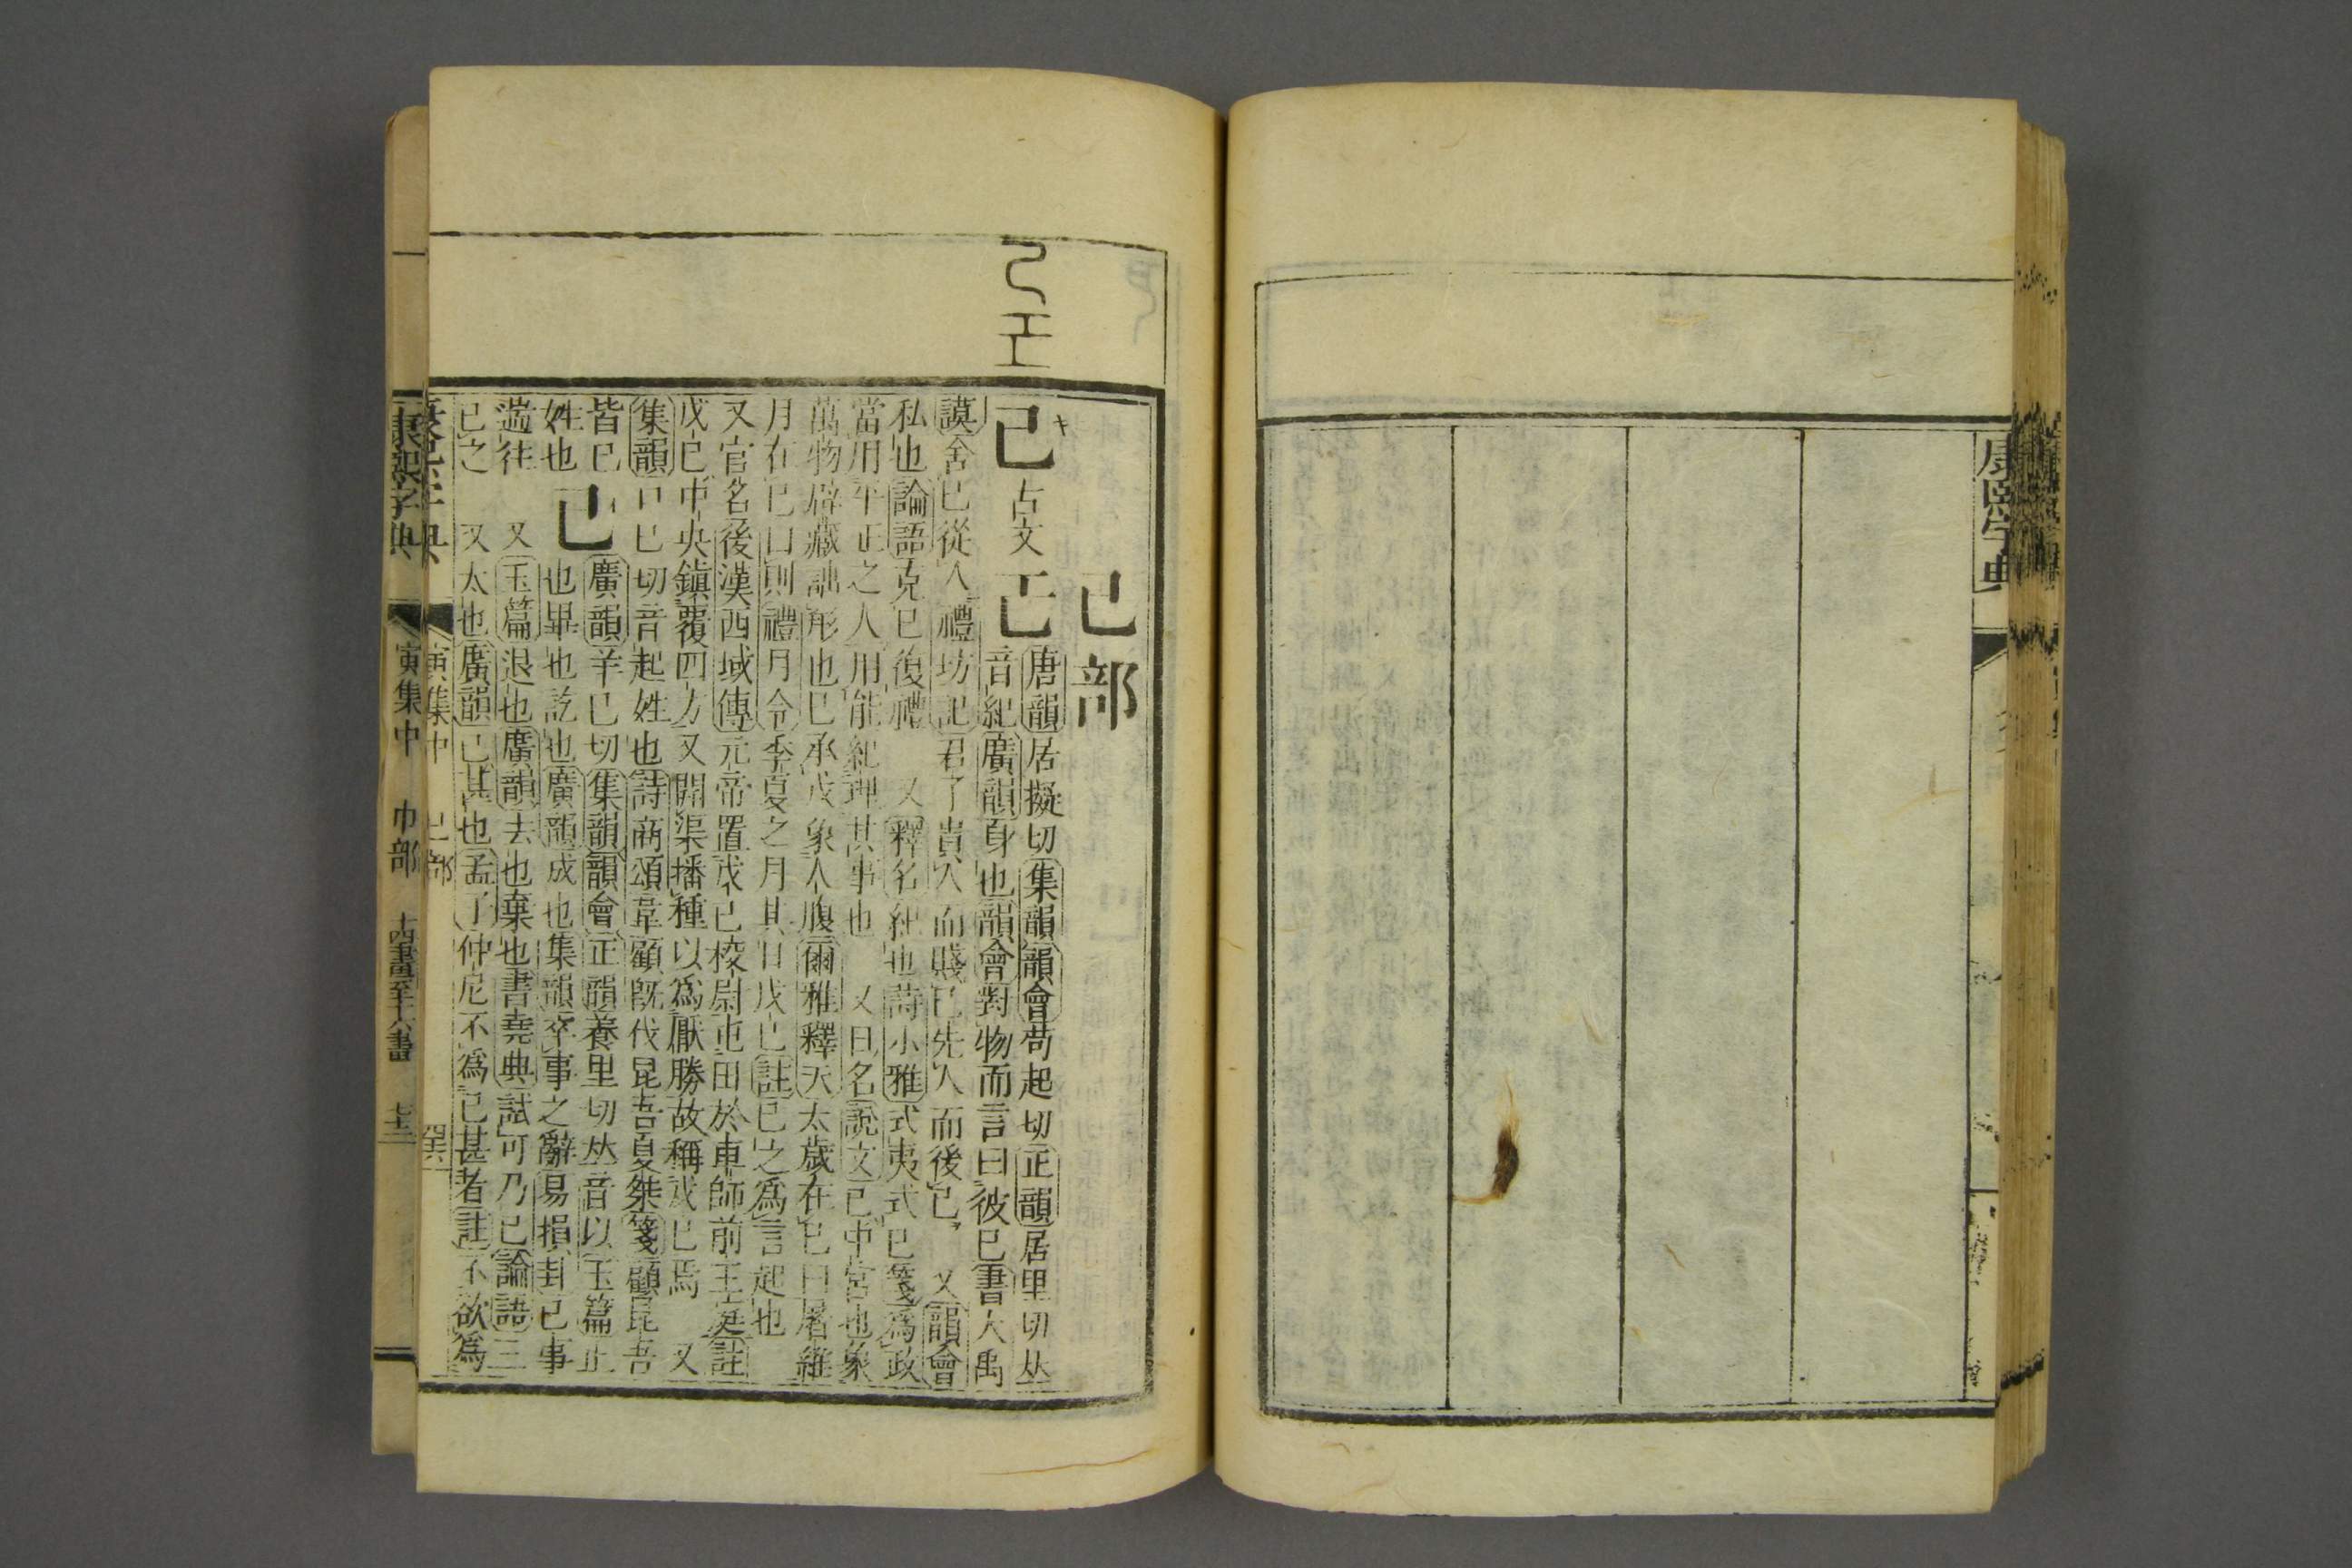 康熙字典
己部
己 古文 𢀒 唐韻居擬切集韻韻會苟起切正韻居里切𠀤
音紀廣韻身也韻會對物而言曰彼己書大禹
謨舍己從人禮坊記君子貴人而賤己先人而後己 又韻會
私也論語克己復禮 又釋名紀也詩小雅式夷式已箋爲政
當用平正之人用能紀理其事也 又日名說文己中宮也象
萬物辟藏詘形也己承戊象人腹爾雅釋天太歲在己曰屠維
月在己曰則禮月令季夏之月其日戊己註己之爲言起也
又官名後漢西域傳元帝置戊己校尉屯田於車師前王庭註
戊己中央鎭覆四方又開渠播種以爲厭勝故稱戊己焉 又
集韻口已切音起姓也詩商頌韋顧旣伐昆吾夏桀箋顧昆吾
皆己
姓也
已 廣韻羊已切集韻韻會正韻養里切𠀤音以玉篇止
也畢也訖也廣韻成也集韻卒事之辭易損卦已事
遄往 又玉篇退也廣韻去也棄也書堯典試可乃已論語三
已之 又太也廣韻已甚也孟子仲尼不爲已甚者註不欲爲
康熙字典 寅集中 己部
康熙字典 寅集中 巾部 十四畫至十六畫